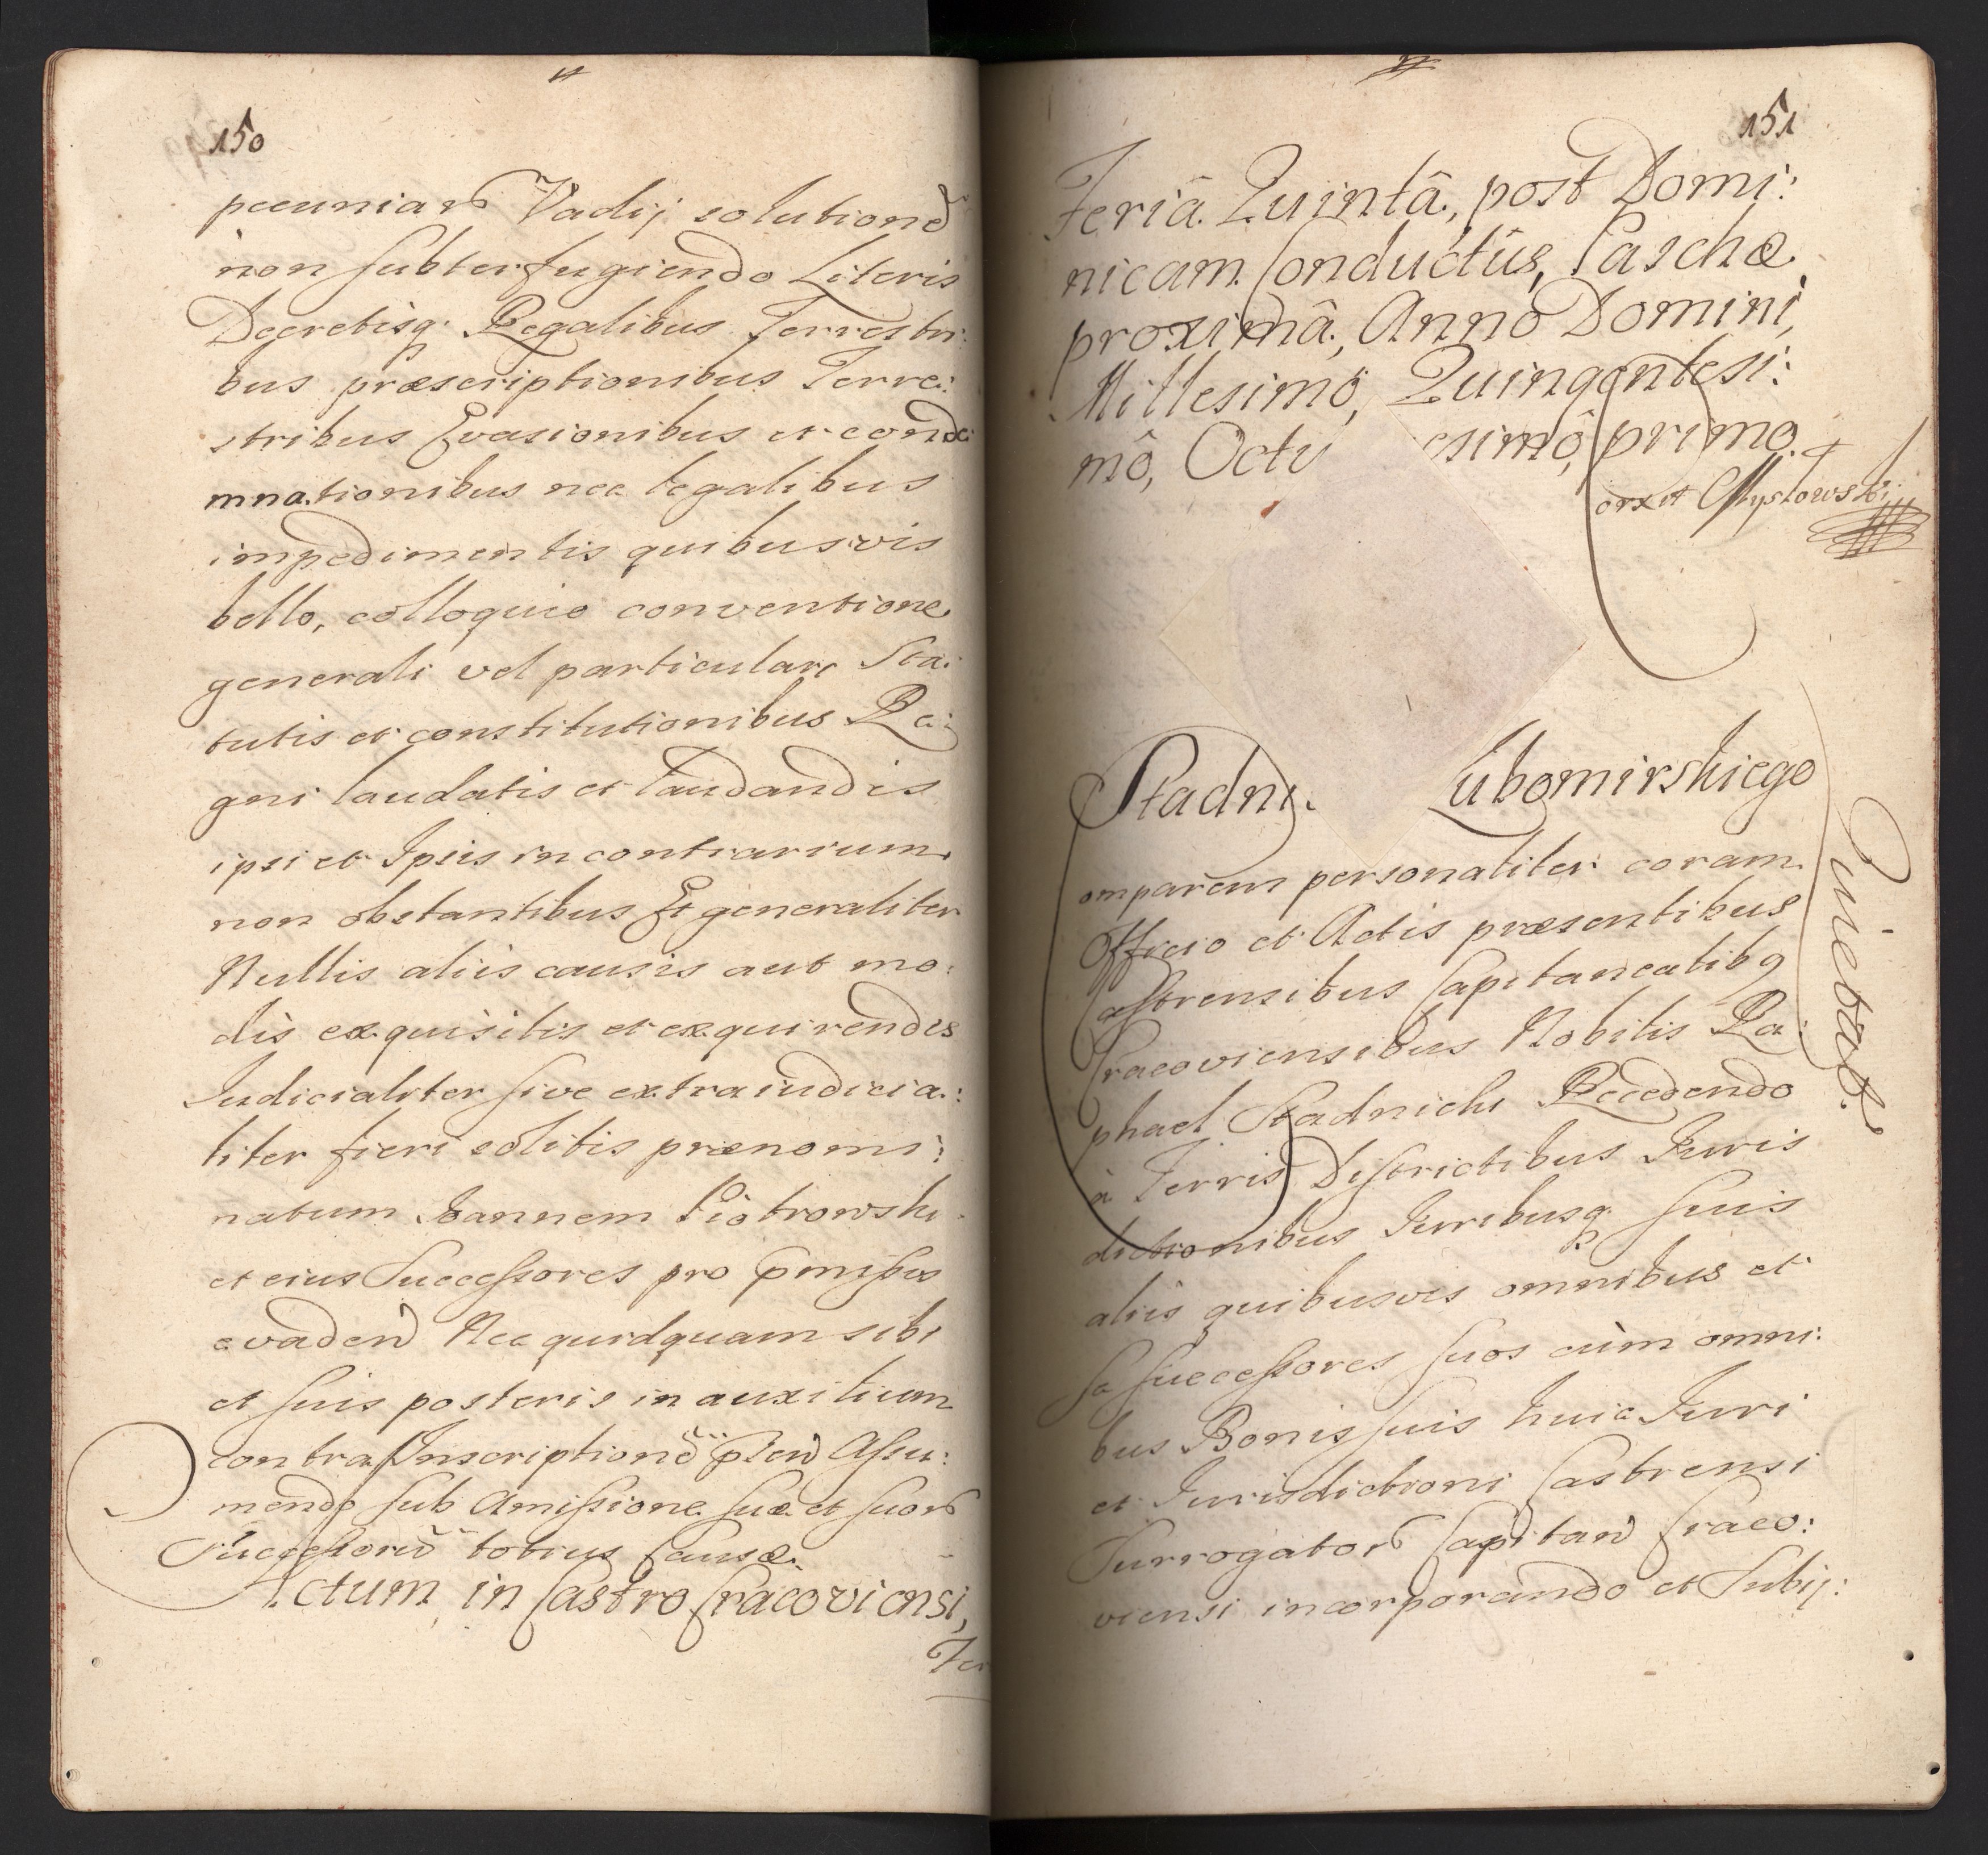 150
pecuniarũ Vadij solutionẽ
non subterfugiendo Literis
Decretisq; Regalibus Terrestri:
bus præscriptionibus Terre:
stribus Evasionibus et conde
mnationibus nec legalibus
impedimentis quibusvis
bello, colloquio conventione
generali vel particulari Sta:
tutis et constitutionibus Re:
gni laudatis et laudandis
ipsi et Ipsis in contrarium
non obstantibus Et generaliter
Nullis aliis causis aut mo:
dis exquisitis et exquirendis
Judicialiter sive extraiudicia:
liter fieri solitis prænomi:
natum Joannem Piotrowski
et eius Successores pro p̃missis
evadend Nec quidquam sibi
et suis posteris in auxilium
contra Inscriptionẽ p̃sen Assu:
mendo sub Amissione suæ et suorũ
Successorũ totius Causæ.
Actum in Castro Cracoviensi,
Fer
151
Feriâ Quintâ, post Domi:
nicam Conductûs, Paschæ
proximâ, Anno Domini,
Millesimô, Quingentesi:
mô, Octu esimô, primo.
Myslowski
Stadni. Lubomirskiego
omparens personaliter coram
Officio et Actis præsentibus
Castrensibus Capitanealib9
Cracoviensibus Nobilis Ra:
phael Stadnicki Recedendo
à Terris Districtibus Juris
dictionibus Juribusq; suis
aliis quibusvis omnibus et
se successores suos cùm omni:
bus Bonis suis huic Juri
et Jurisdictioni Castrensi
Surrogatorũ Capitan Craco:
viensi incorporando et Subij: